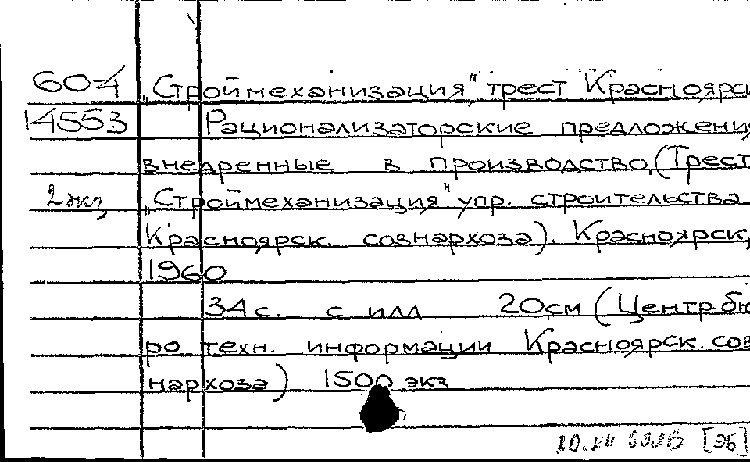 60-4 „Строймеханизация", трест Красноярск
14553 Рационализаторские предложения,
внедренные в производство. (Трест
2 экз „Строймеханизация" упр. строительства
Красноярск. совнархоза). Красноярск,
1960
34 с. с илл 20 см (Центр бю
ро техн. информации Красноярск. сов
нархоза) 1500 экз
[ЭБ]